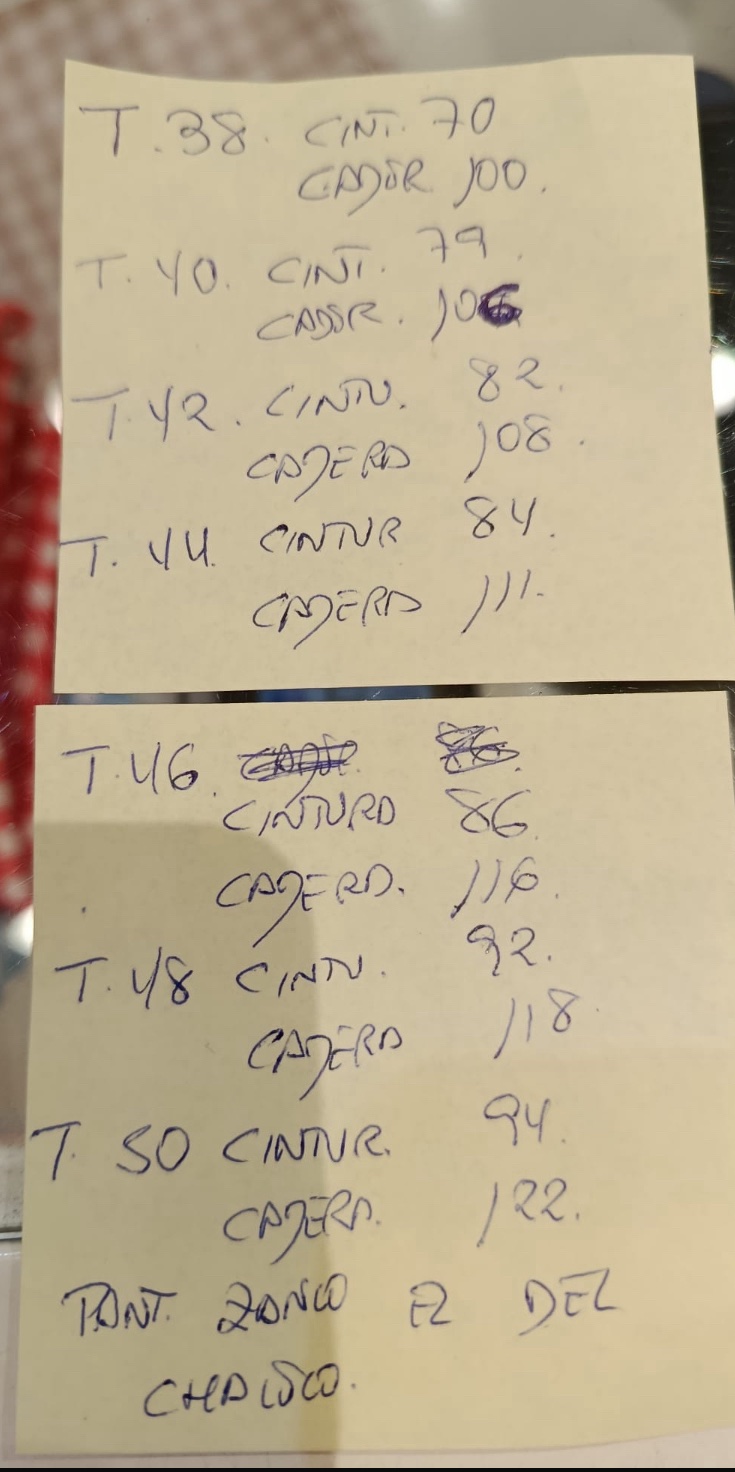 T.38. CINT. 70
CADER 100.
T. 40. CINT. 79.
CADER. 106
T. 42. CINTU. 82.
CADERA 108.
T. 44. CINTUR 84.
CADERA 111.
T. 46.
CINTURA 86.
CADERA. 116.
T. 48 CINTU. 92.
CADERA 118.
T. 50 CINTUR. 94.
CADERA. 122.
PANT. EL DEL
CHALECO.